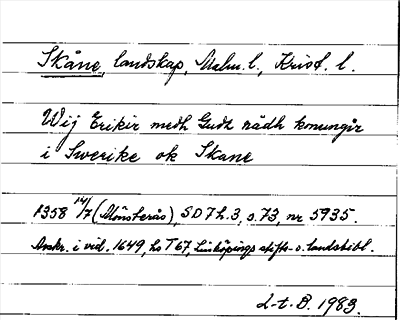 Skåne, landskap, Malm. l., Krist. l.
Wij Erikir medh Gudz nådh konungir
i Swerike ok Skane
1358 14/7 (Mönsterås), SD 7 h. 3, s. 73, nr 5935.
Avskr. i vid. 1649, hs T 67, Linköpings stifts- o. landsbibl.
L-t. B. 1983.